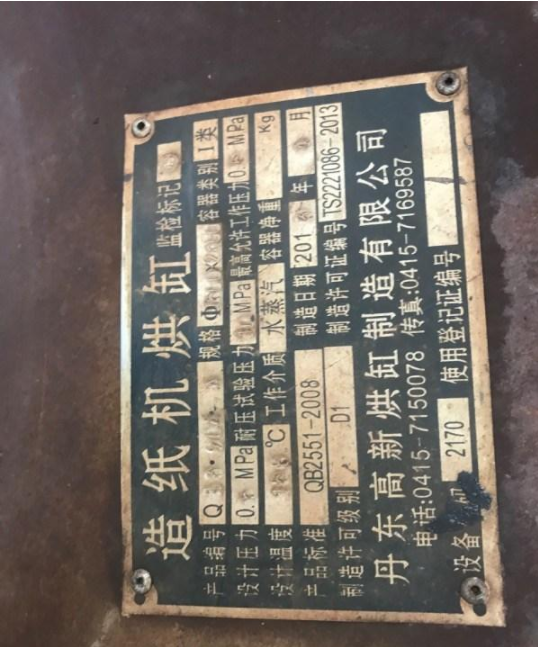 造纸机烘缸 监检标记
产品编号 Q 规格 Φ 容器类别 I类
设计压力 0. MPa 耐压试验压力 MPa 最高允许工作压力 0. MPa
设计温度 ℃ 工作介质 水蒸汽 容器净重 Kg
产品标准 QB2551-2008 制造日期 201 年 月
制造许可级别 D1 制造许可证编号 TS2221086-2013
丹东高新烘缸制造有限公司
电话:0415-7150078 传真:0415-7169587
设备 2170 使用登记证编号